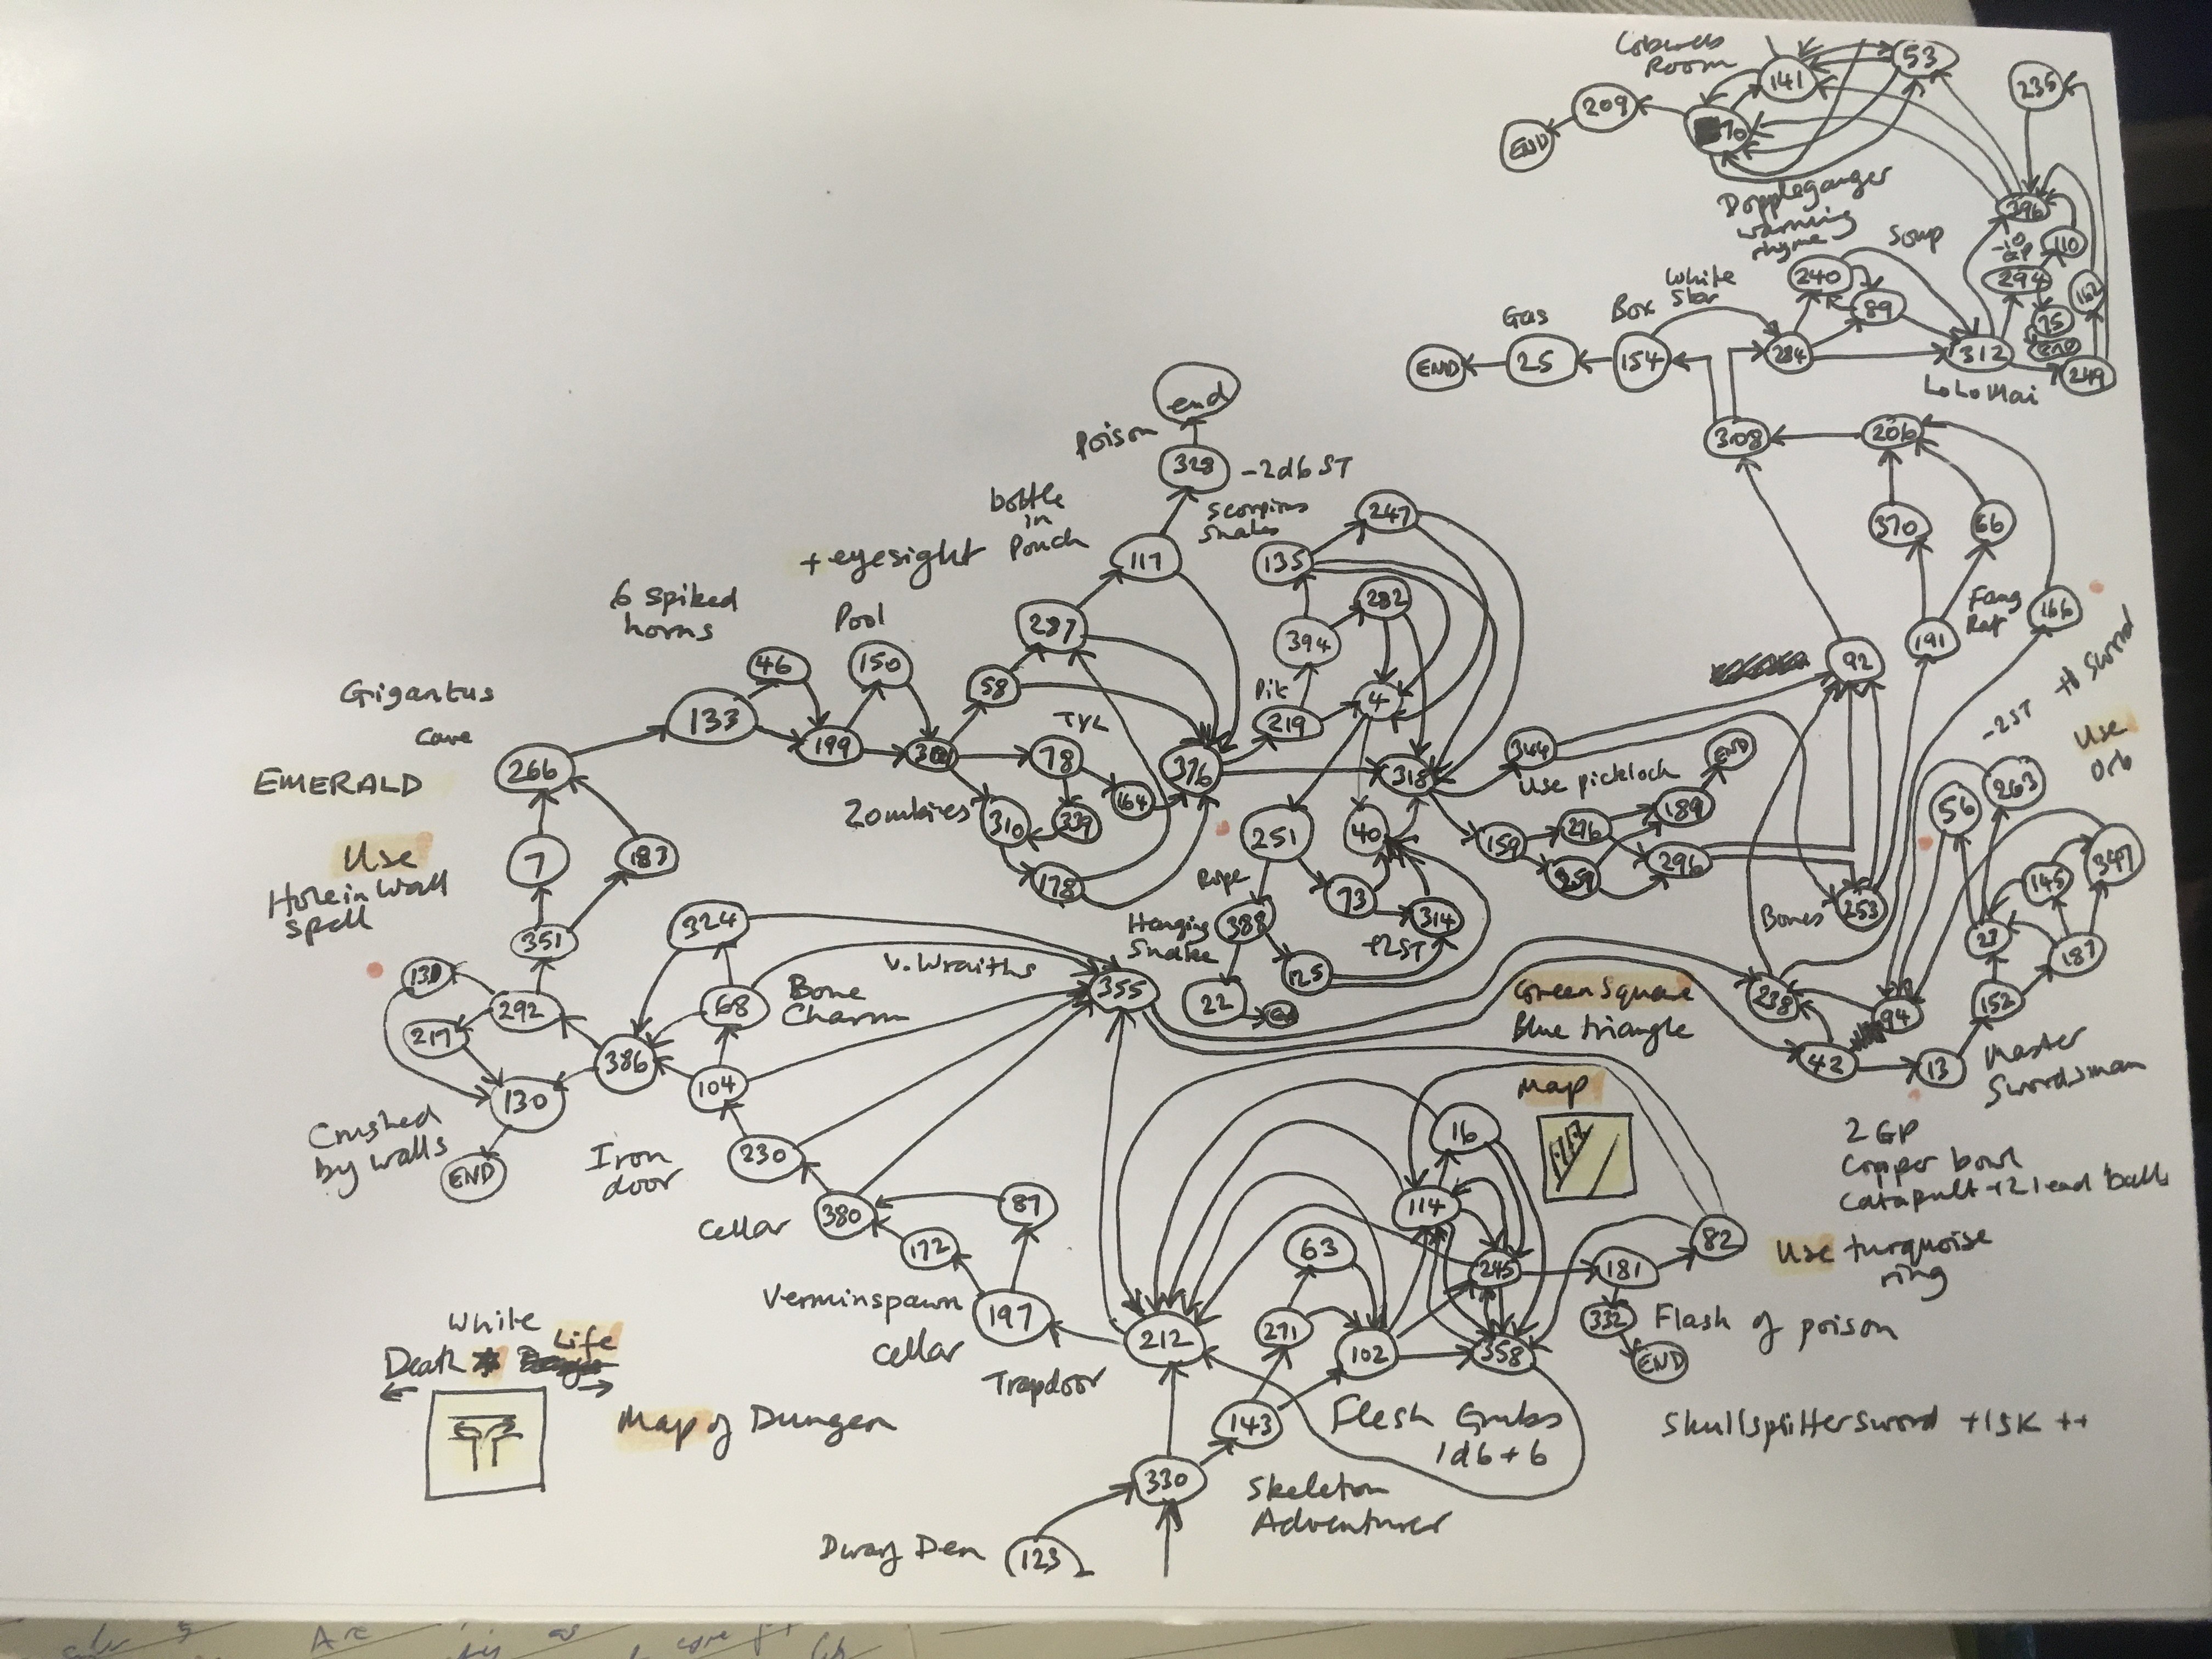 Cobwebs
Room
141
53
235
209
END
70
Doppleganger
warning
rhyme
396
-10
GP
110
Soup
240
294
162
White
Star
89
75
END
Gas
Box
END
25
154
284
312
249
LoLo Mai
end
Poison
308
206
328
-2d6 ST
bottle
in
Pouch
scorpions
snakes
247
370
66
+ eyesight
117
135
6 spiked
horns
Pool
287
282
Fang
Rat
166
394
191
46
150
58
92
+1 sword
Gigantus
cave
133
TYL
Pit
219
4
-2ST
199
78
376
318
344
END
Use
orb
266
EMERALD
Use picklock
56
263
Zombies
310
339
164
251
40
159
276
189
347
7
183
259
296
145
Use
Hole in Wall
spell
178
Rope
73
Bones
253
324
Hanging
Snake
388
314
+2ST
27
187
351
V. Wraiths
125
68
Bone
Charm
355
22
end
Green Square
Blue triangle
238
94
152
292
217
386
104
42
13
Master
Swordsman
130
Map
Crushed
by walls
16
2 GP
Copper bowl
Catapult + 2 lead balls
END
Iron
door
230
87
114
380
Cellar
172
63
82
Use turquoise
ring
245
181
Verminspawn
197
212
271
332
Flash of poison
White
Cellar
102
358
END
Death
Life
Trapdoor
Map of Dungeon
143
Flesh Grubs
1d6 + 6
Skullsplitter sword +1SK ++
330
Skeleton
Adventurer
Dwarf Den
123